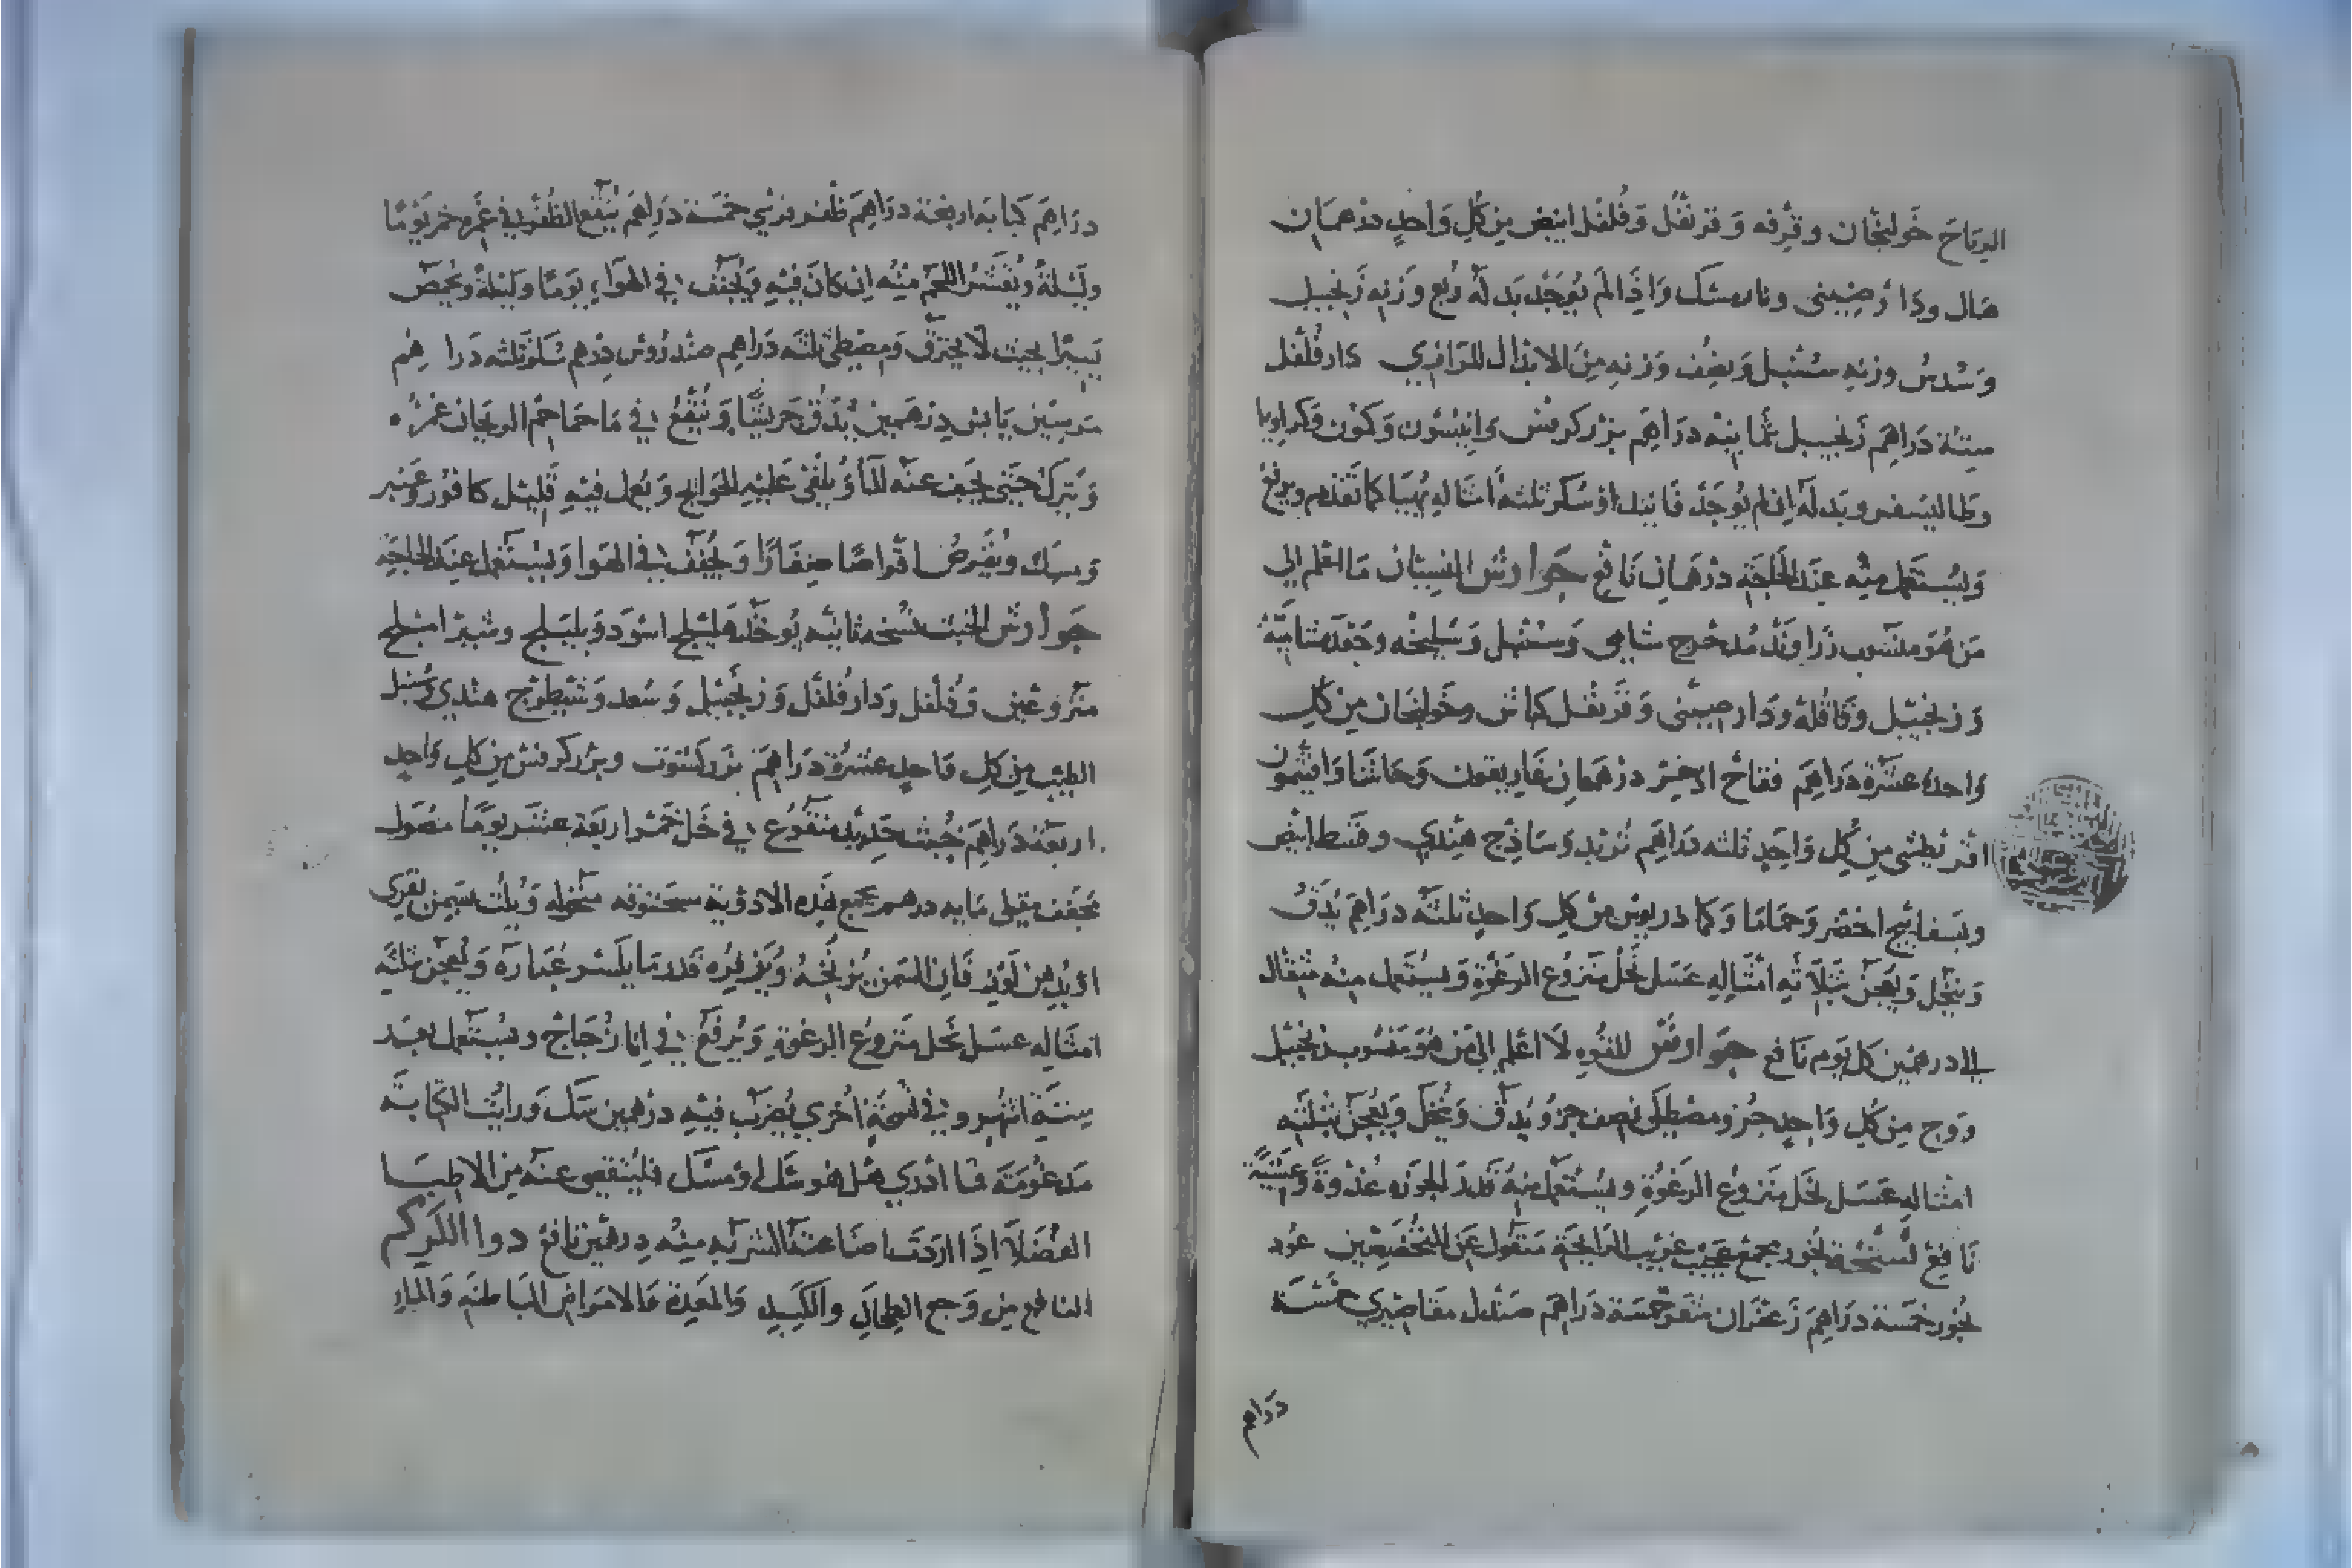 الرياح خولنجان وقرفه وقرنفل وفلفل ابيض من كل واحد درهمان
هال ودارصيني ونارمشك واذا لم يوجد بدله ربع وزنه زنجبيل
وسدس وزنه سنبل ونصف وزنه من الابدال للرازي دارفلفل
ستة دراهم زنجبيل ثمانيه دراهم بزر كرفس وانيسون وكمون وكراويا
وطاليسفر وبدله ان لم يوجد فانيد او سكر ثلثه امثاله يهيا كما تقدم ويرفع
ويستعمل منه عند الحاجة درهمان نافع جوارش النسيان ما اعلم الي
من هو منسوب زراوند مدحرج شامي وسنبل وسليخه وجعده شاميه
وزنجبيل وقاقله ودارصيني وقرنفل وخولنجان من كل
واحد عشرة دراهم فقاح اذخر درهمان غاريقون وحاشا وافيثمون
اقريطشي من كل واحد ثلثه دراهم تربد وساذج هندي وقسط ابيض
وبسفايج اخضر وحماما وكمادريوس من كل واحد ثلثه دراهم يدق
وينخل ويعجن بثلاثه امثاله عسل نحل منزوع الرغوة ويستعمل منه مثقال
الي درهمين كل يوم نافع جوارش للقوه لا اعلم الي من هو منسوب زنجبيل
ووج من كل واحد جزو مصطكي نصف جزو يدق وينخل ويعجن بثلثه
امثاله عسل نحل منزوع الرغوة ويستعمل منه قدر الجوزه غدوة وعشية
نافع نسخة بخور مجمع عجيب غريب الرايحة منقول عن عود
بخور خمسة دراهم زعفران خمسة دراهم صندل مقاصيري خمسة
دراهم
دراهم كبابه اربعة دراهم ظفر قرشي خمسة دراهم ينقع الظفر في غمره خمر يوما
وليلة ويقشر اللحم منه ان كان فيه ويجفف في الهواء يوما وليلة ويحمص
يسيرا بحيث لا يحترق ومصطكي ثلثه دراهم سندروس درهم ثلثه دراهم
مرسين يابس درهمين يدق جريشا وينقع في ما حماحم الريحان غمره
ويترك حتي يجف عنه الما ويلقي عليه الحوايج ويعمل فيه قليل كافور وعنبر
ومسك ويقرص اقراصا صغارا ويجفف في الهوا ويستعمل عند الحاجة
جوارش الخبث نسخه ثانيه يوخذ هليلج اسود وبليلج وشير املج
منزوعين وفلفل ودارفلفل وزنجبيل وسعد وشيطرج هندي وسنبل
الطيب من كل واحد عشرة دراهم بزر كشوت وبزر كرفس من كل واحد
اربعة دراهم خبث حديد منقوع في خل خمر اربعة عشر يوما مصول
مجفف مقلي مايه درهم يجمع هذه الادوية مسحوقه منخوله ويلت بسمن بقري
او بدهن لوز فان السمن يزنخه ويفزره قدر ما يكسر غباره ويعجن بثلثه
امثاله عسل نحل منزوع الرغوة ويرفع في انا زجاج ويستعمل بعد
ستة اشهر وفي نسخة اخري يضرب فيه درهمين سك ورايت الكتابه
مدغومة فما ادري هل هو سك او مسك فليتقصي عنه من الاطبا
الفضلا اذا اردت صناعته الشربه منه درهمين نافع دوا الكركم
النافع من وجع الطحال والكبد والمعدة والامراض الباطنه والماء